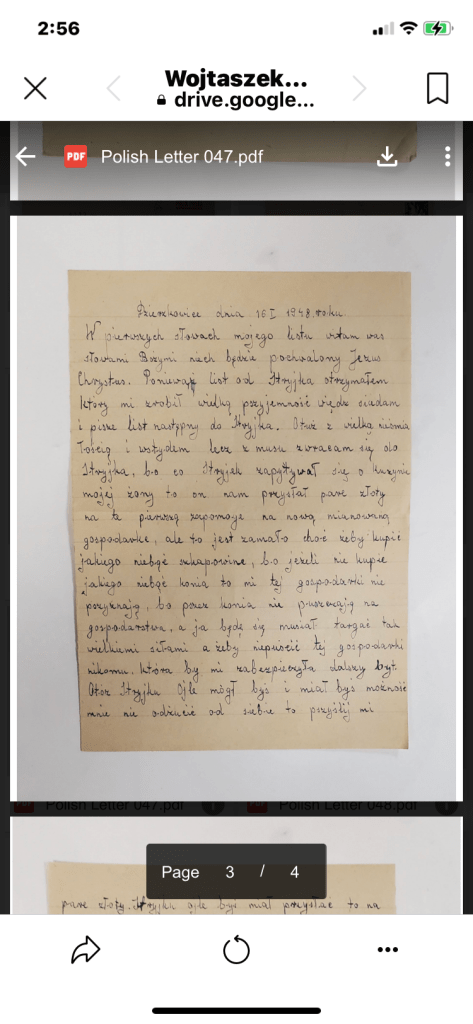 2:56
Wojtaszek...
drive.google...
PDF Polish Letter 047.pdf
Dzierzkowice dnia 16 I 1948. roku
W pierwszych słowach mojego listu witam was
słowami Bożymi niech będzie pochwalony Jezus
Chrystus. Ponuwaz list od Stryjka otrzymałem
który mi zrobił wielką przyjemność więdz siadam
i pisze list następny do Stryjka. Otuż z wielką niśmia
łością i wstydem lecz z musu zwracam się do
Stryjka, bo co Stryjek zapytywał się o kuzynie
mojej żony to on nam przysłał pare złoty
na tą pierwszą zapomoje na nową mianowaną
gospodarke, ale to jest zamało choć żeby kupić
jakiego niebądź szkapowine, bo jeżeli nie kupie
jakiego niebądź konia to mi tej gospodarki nie
przyznają, bo przez konia nie puszczają na
gospodarstwa, a ja będę się musiał targać tak
wielkiemi siłami a żeby niepuścić tej gospodarki
nikomu, która by mi zabezpieczyła dalszy byt.
Otóż Stryjku Ojle mógł byś i miał byś możność
mnie nie odzucić od siebie to przyślij mi
Polish Letter 047.pdf
Polish Letter 048.pdf
Page 3 / 4
pare złoty. Stryjku ojle byś miał przysłac to na